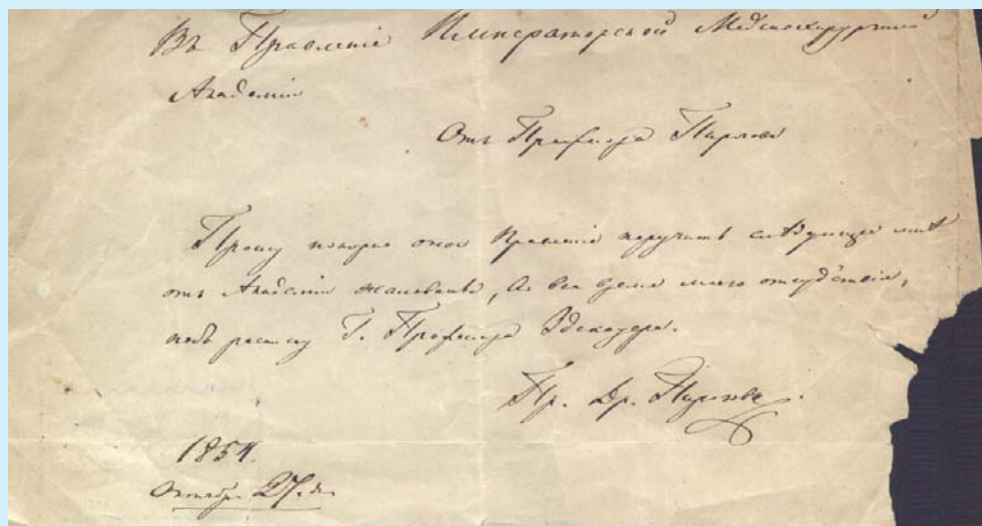 Въ Правленіе Императорской Медикохирургической
Академіи
Отъ Профессора Пирогова
Прошу покорно оное Правленіе поручить слѣдующее мнѣ
отъ Академіи жалованье, во все время моего отсудствія,
подъ росписку Г. Профессора Здекауера.
Пр. Др. Пироговъ.
1854.
Октябр. 27. д.